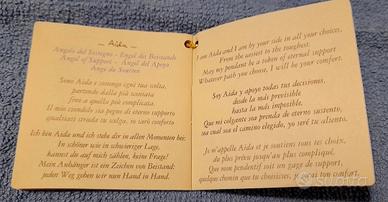 Aida
Angelo del Sostegno - Engel des Beistands
Angel of Support - Ángel del Apoyo
Ange du Soutien
Sono Aida e sostengo ogni tua scelta,
partendo dalla più scontata
fino a quella più complicata.
Il mio ciondolo sia pegno di eterno supporto
qualsiasi strada tu scelga, io sarò conforto
Ich bin Aida und ich stehe dir in allen Momenten bei:
In schöner wie in schwieriger Lage,
kannst du auf mich zählen, keine Frage!
Mein Anhänger ist ein Zeichen von Beistand:
jeden Weg gehen wir nun Hand in Hand.
I am Aida and I am by your side in all your choices,
From the easiest to the toughest.
May my pendant be a token of eternal support
Whatever path you choose, I will be your comfort.
Soy Aida y apoyo todas tus decisiones,
desde la más previsible
hasta la más imposible.
Que mi colgante sea prenda de eterno sustento,
sea cual sea el camino elegido, yo seré tu aliento.
Je m'appelle Aida et je soutiens tous tes choix,
du plus prévu jusqu'au plus compliqué.
Que mon pendentif soit un gage de support,
quelque chemin que tu choisisses, j'serai ton confort.
subito